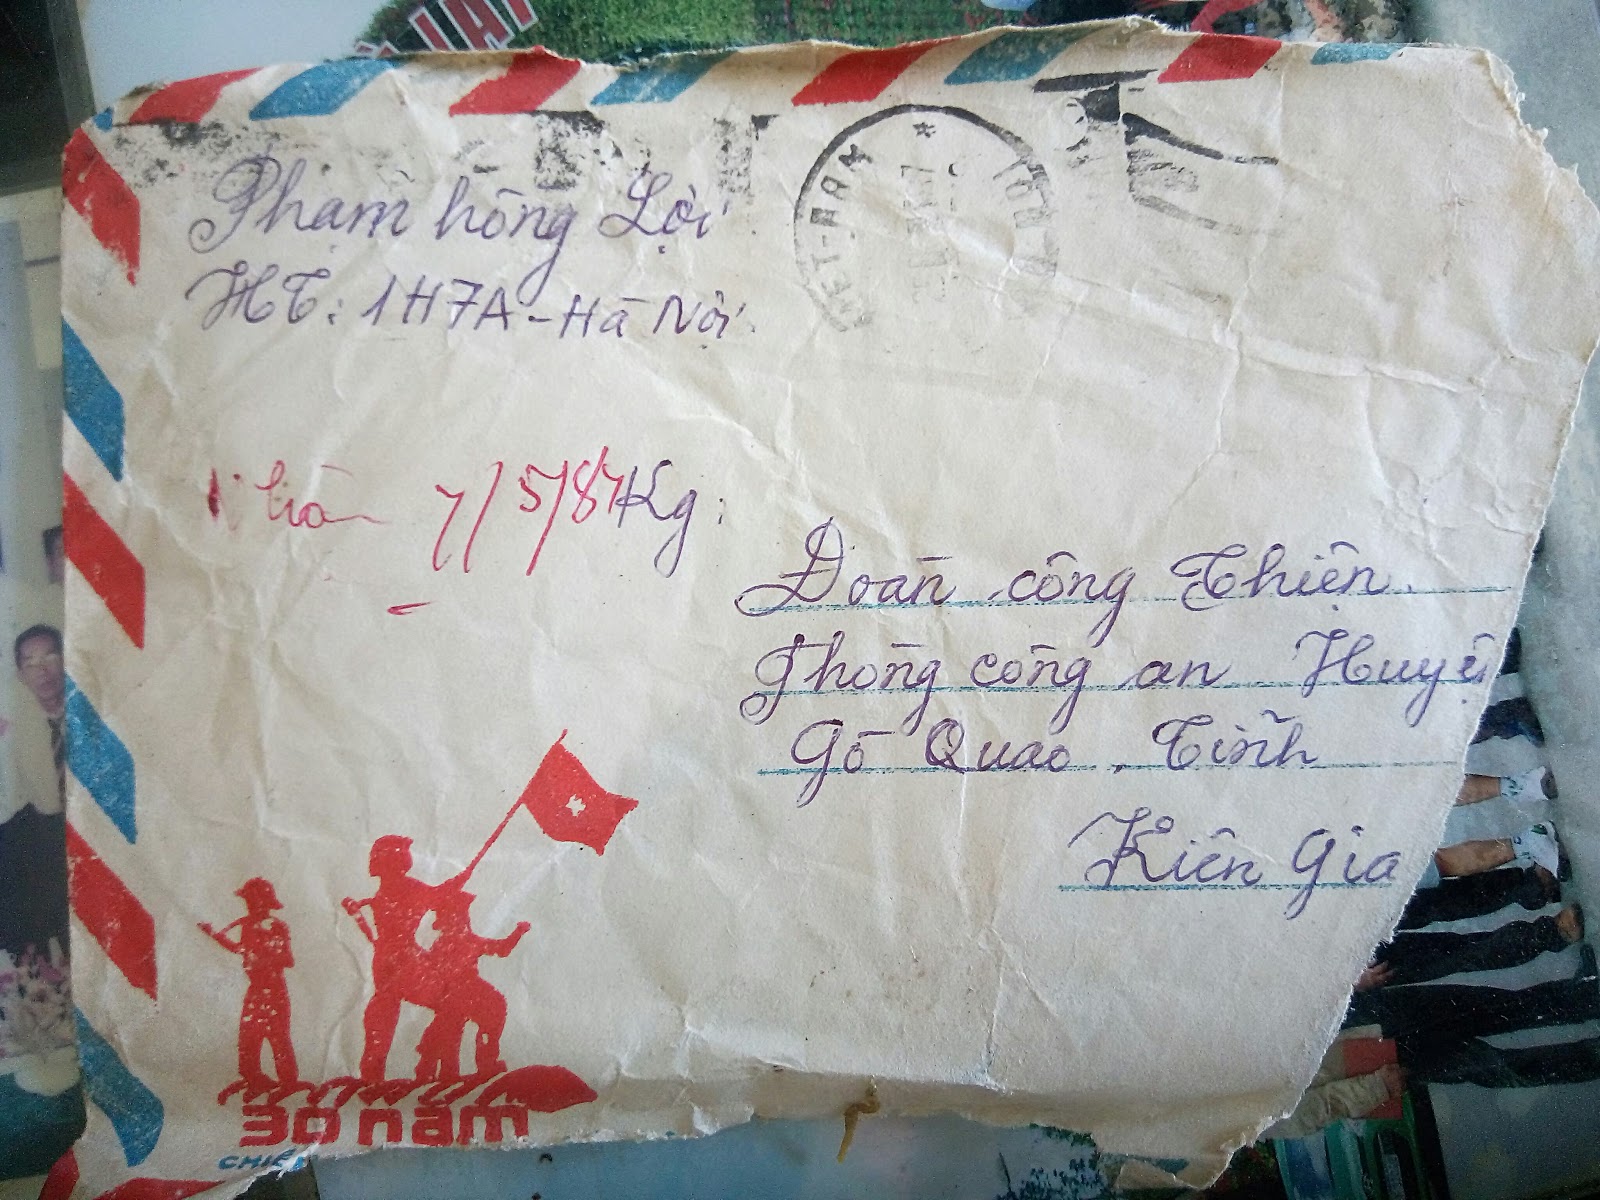 Phạm hồng Lợi
HT: 1H7A - Hà Nội.
VIET-NAM *
Nhận 7/5/87
Kg:
Đoàn công Thiện.
Phòng công an Huyệ
Gò Quao. Tỉnh
Kiên Gia
30 năm
CHIẾ